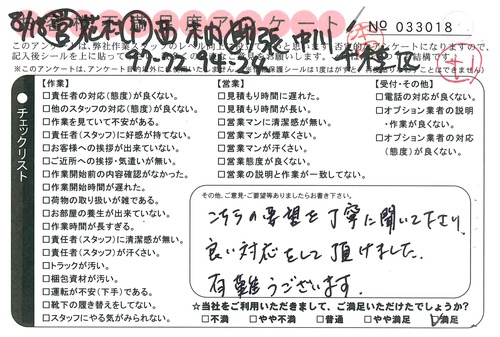 アンケート
№ 033018
8/18
中川
97-22 94-24
千種区
+1
このアンケートは、弊社作業スタッフのレベル向上
記入後シールを上に貼って
※このアンケートは、アンケート
チェックリスト
【作業】
□責任者の対応(態度)が良くない。
□他のスタッフの対応(態度)が良くない。
□作業を見ていて不安がある。
□責任者(スタッフ)に好感が持てない。
□お客様への挨拶が出来ていない。
□ご近所への挨拶・気遣いが無い。
□作業開始前の内容確認がなかった。
□作業開始時間が遅れた。
□荷物の取り扱いが雑である。
□お部屋の養生が出来ていない。
□作業時間が長すぎる。
□責任者(スタッフ)に清潔感が無い。
□責任者(スタッフ)が汗くさい。
□トラックが汚い。
□梱包資材が汚い。
□運転が不安(下手)である。
□靴下の履き替えをしてない。
□スタッフにやる気がみられない。
【営業】
□見積もり時間に遅れた。
□見積もり時間が長い。
□営業マンに清潔感が無い。
□営業マンが煙草くさい。
□営業マンが汗くさい。
□営業態度が良くない。
□営業の説明と作業が一致してない。
【受付・その他】
□電話の対応が良くない。
□オプション業者の説明
・作業が良くない。
□オプション業者の対応
(態度)が良くない。
その他、ご意見・ご要望等ありましたらお書き下さい。
こちらの要望を丁寧に聞いて下さり、
良い対応をして頂けました。
有難うございます。
☆当社をご利用いただきまして、ご満足いただけたでしょうか?
□不満 □やや不満 □普通 □やや満足 □満足